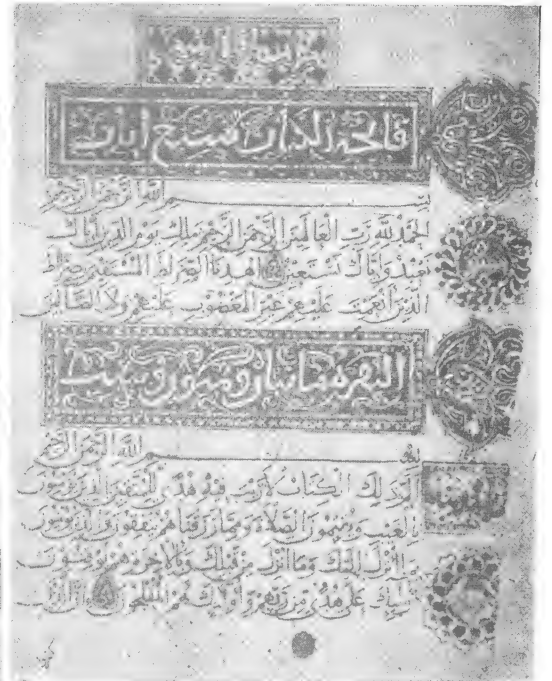 فاتحة الكتاب سبع ايات
بسم الله الرحمن الرحيم
الحمد لله رب العالمين الرحمن الرحيم ملك يوم الدين اياك
نعبد واياك نستعين اهدنا الصراط المستقيم صراط
الذين انعمت عليهم غير المغضوب عليهم ولا الضالين
البقرة مائتان وثمانون وست
بسم الله الرحمن الرحيم
الم ذلك الكتاب لا ريب فيه هدى للمتقين الذين يومنون
بالغيب ويقيمون الصلاة ومما رزقناهم ينفقون والذين يومنون
بما انزل اليك وما انزل من قبلك وبالاخرة هم يوقنون
اولئك على هدى من ربهم واولئك هم المفلحون ان الذين